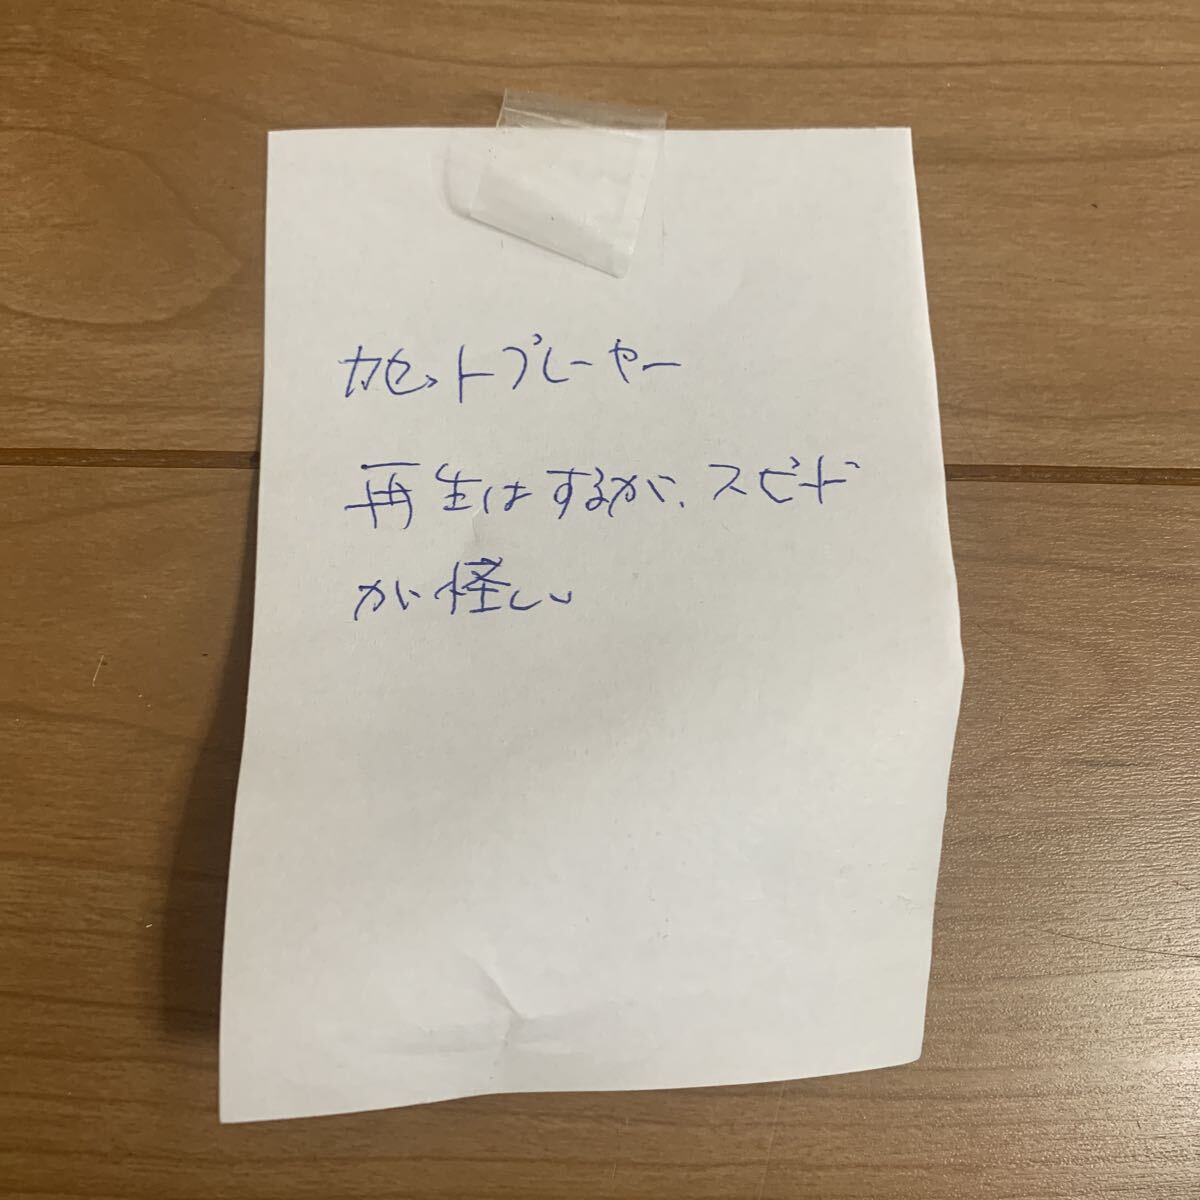 カセットプレーヤー
再生はするが、スピード
が怪しい